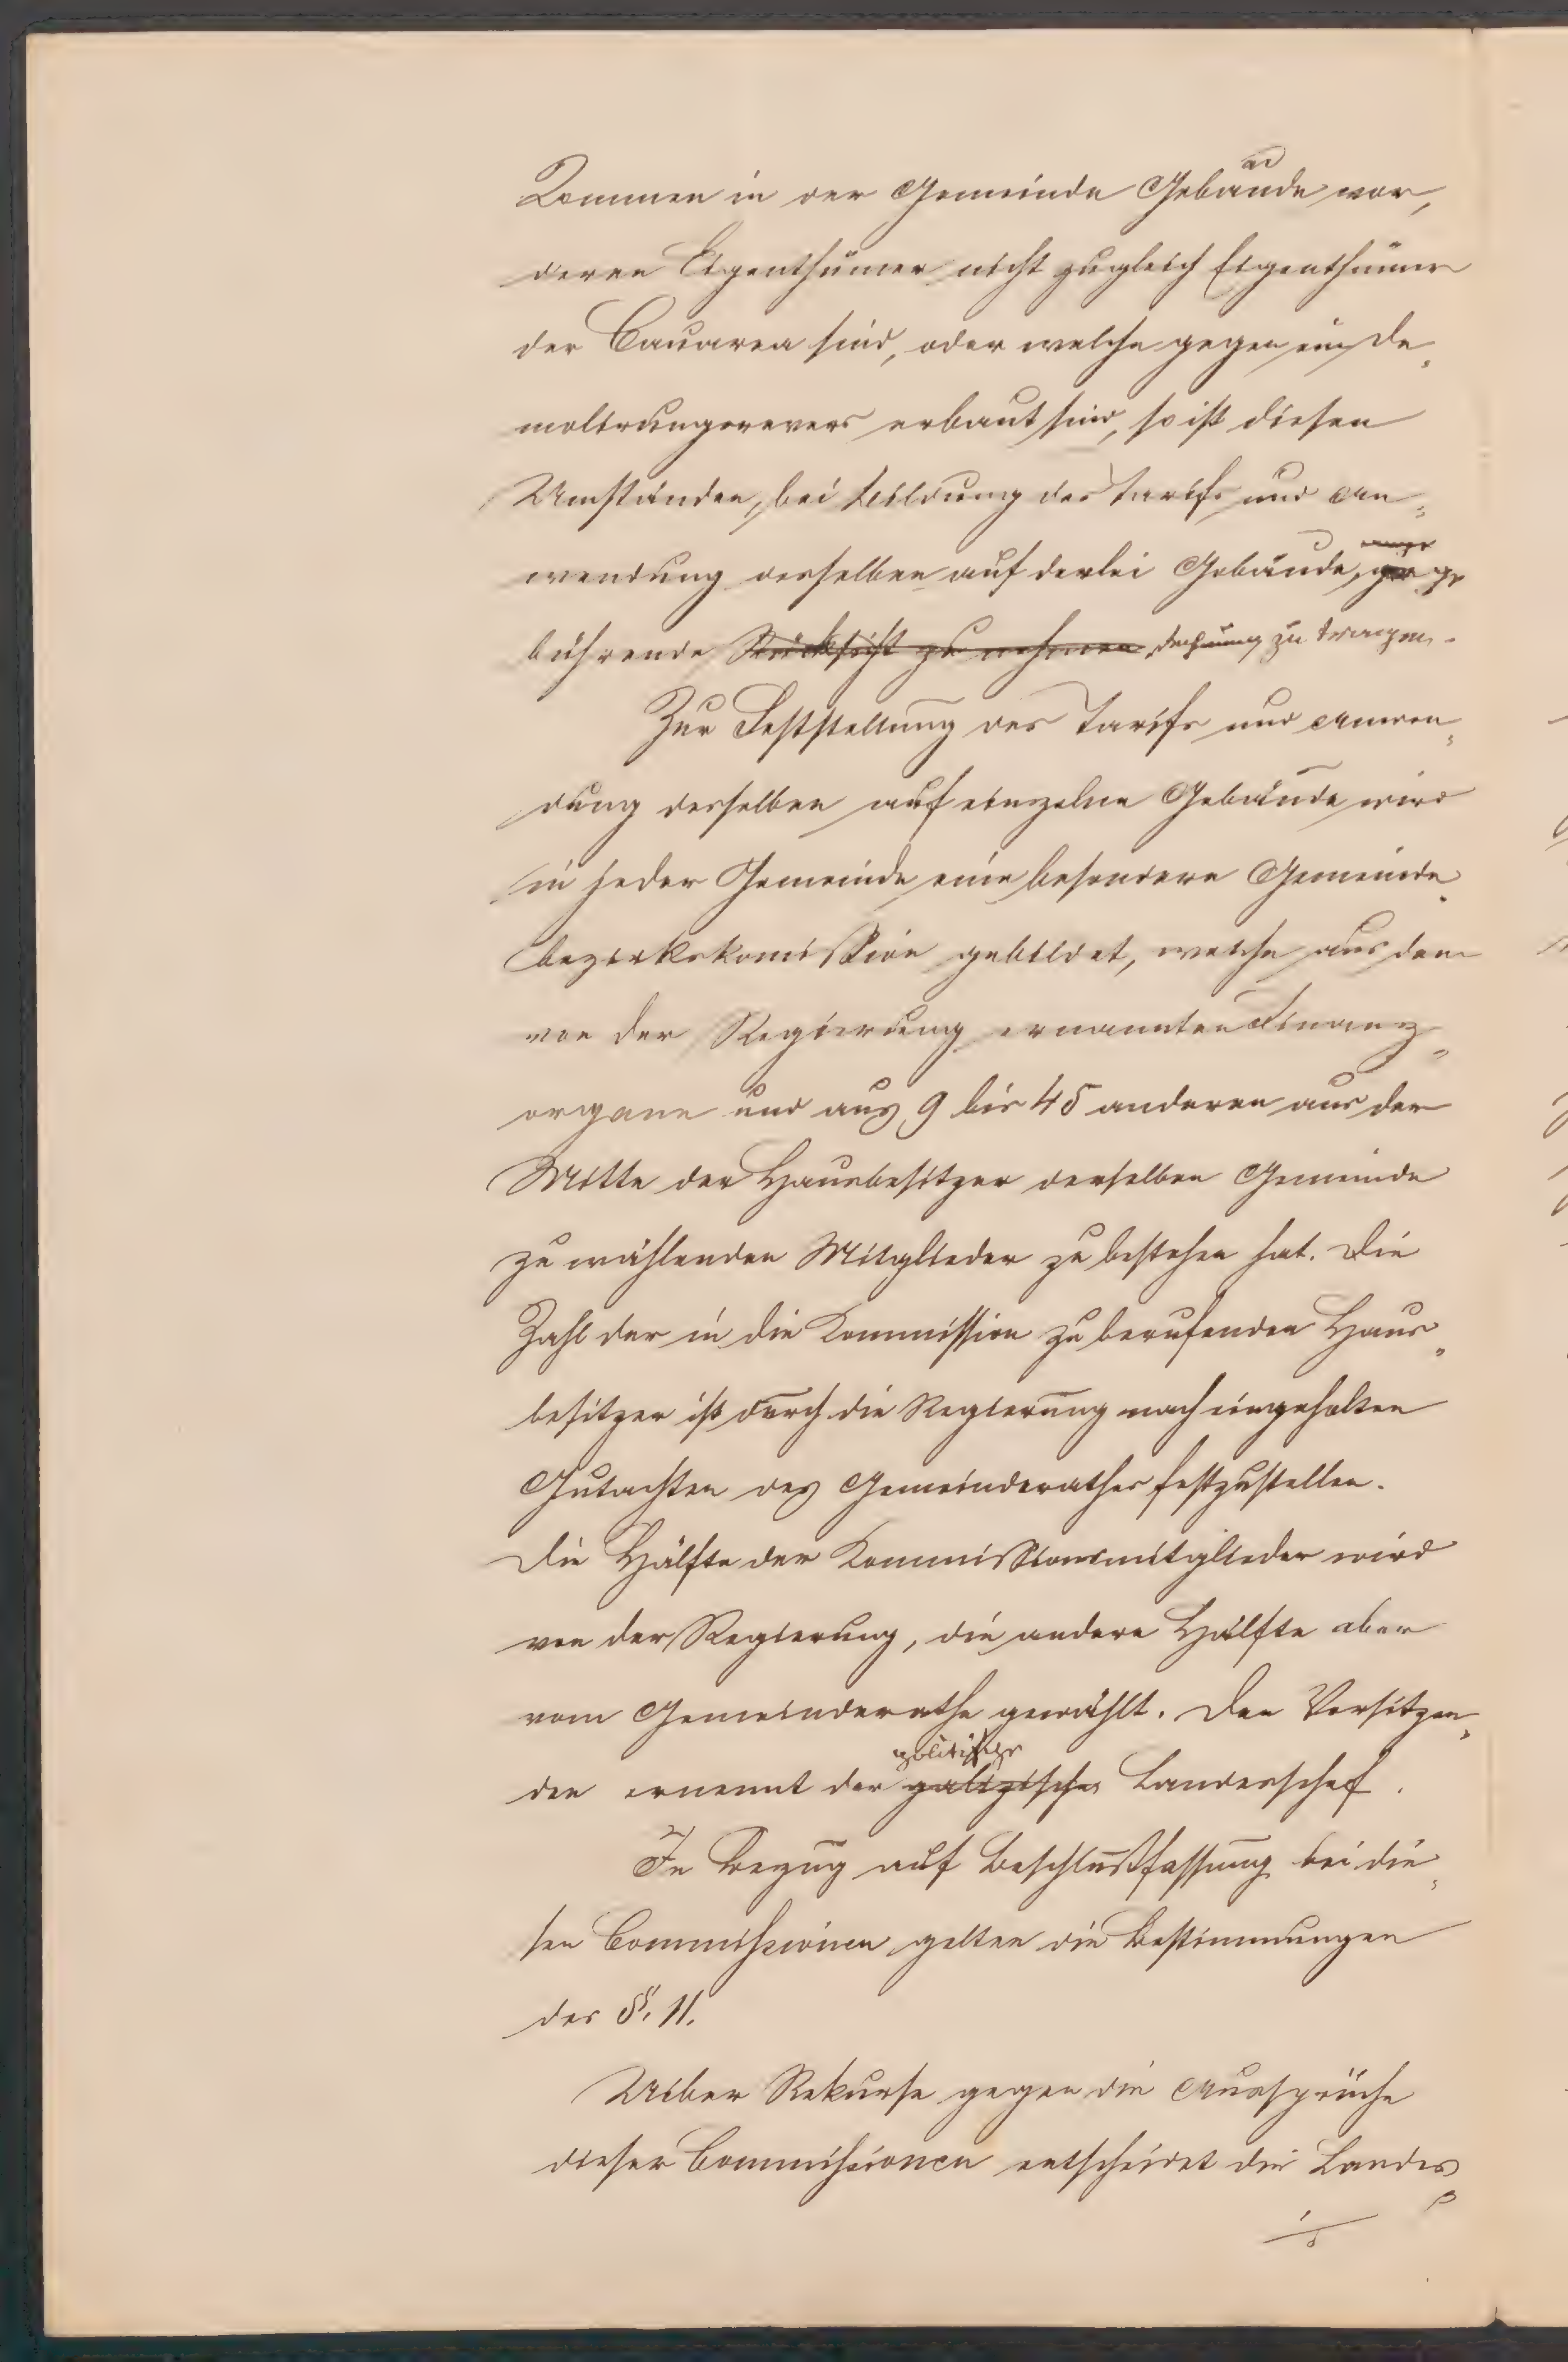 Kommen in der Gemeinde Gebäude vor,
deren Eigenthümer nicht zugleich Eigenthümer
der Bauarea sind, oder welche gegen ein De„
molirungsrevers erbaut sind, so ist diesen
Umständen, bei Bildung des Tarifs und An„
wendung desselben auf derlei Gebäude, ge
bührende Rücksicht zu nehmen Rechnung zu tragen.
Zur Feststellung des Tarifs und Anwen„
dung desselben auf einzelne Gebäude wird
in jeder Gemeinde eine besondere Gemeinde„
bezirkskomission gebildet, welche aus dem
von der Regierung ernannten Finanz„
organe und aus 9 bis 45 anderen aus der
Mitte der Hausbesitzer derselben Gemeinde
zu wählenden Mitglieder zu bestehen hat. Die
Zahl der in die Kommission zu berufenden Haus„
besitzer ist durch die Regierung nach eingeholten
Gutachten des Gemeinderathes festzustellen.
Die Hälfte der Kommissionsmitglieder wird
von der Regierung, die andere Hälfte aber
vom Gemeinderathe gewählt. Den Vorsitzen„
politische
den ernennt der galizische Landeschef.
In Bezug auf Beschlußfassung bei die„
sen Commissionen gelten die Bestimmungen
des §. 11.
Ueber Rekurse gegen die Aussprüche
dieser Commissionen entscheidet die Landes„